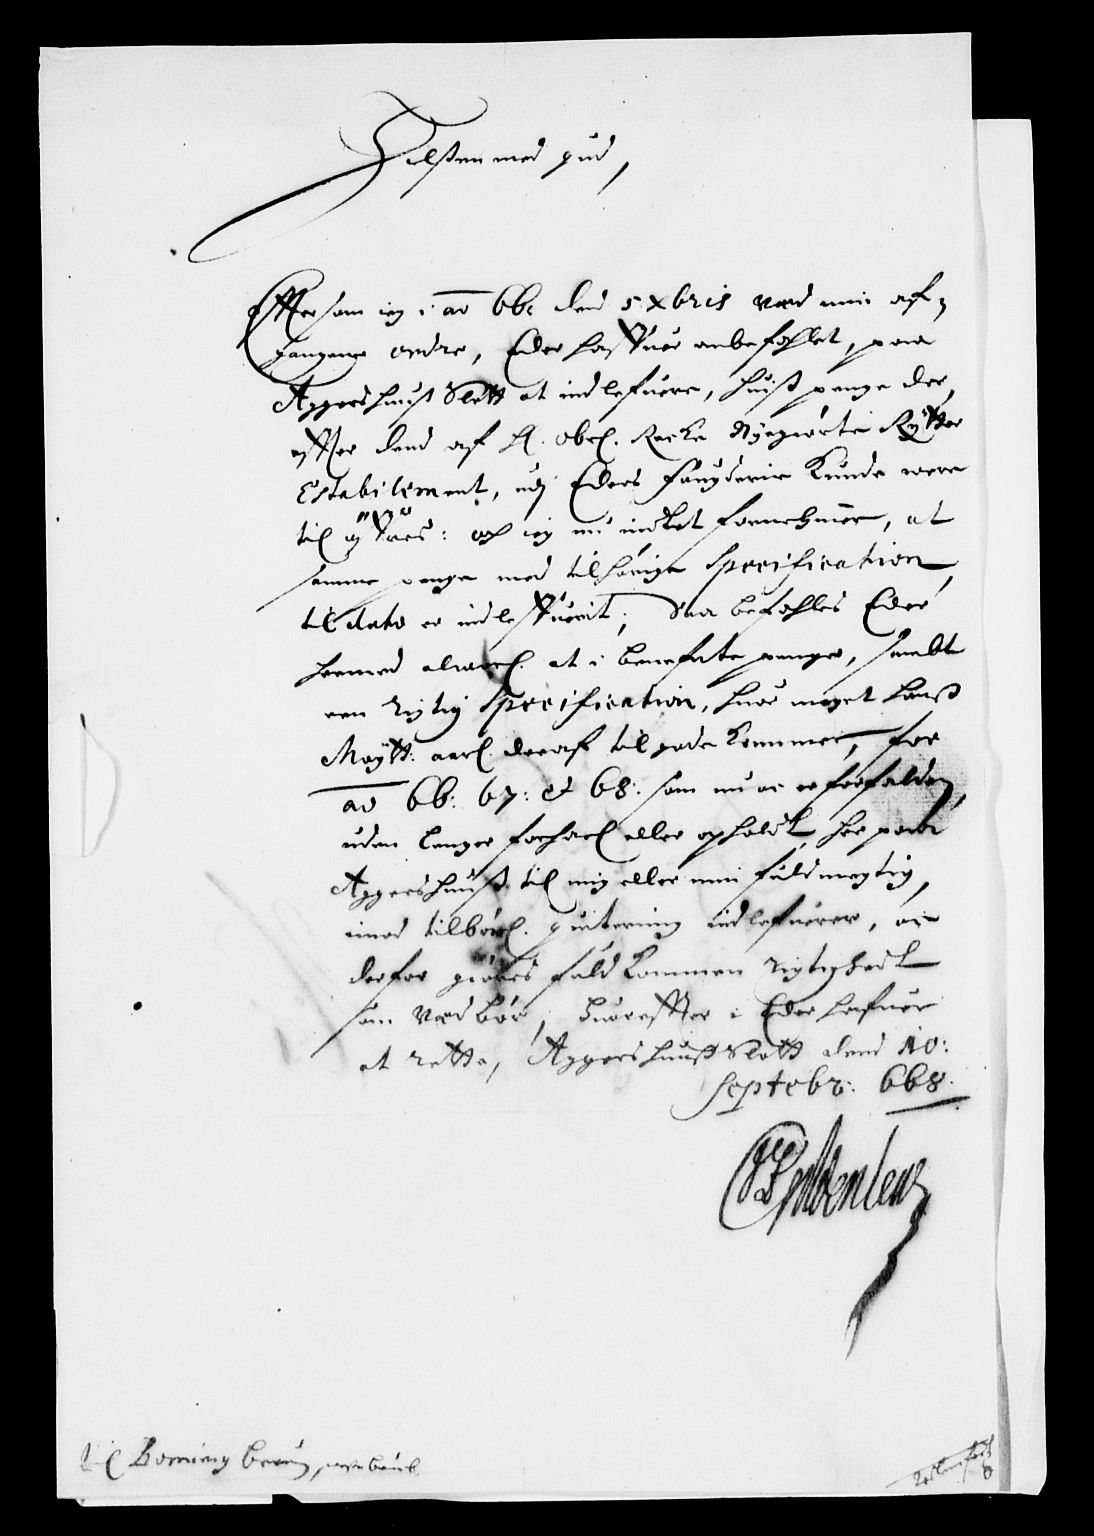 Hilsen med gud,
Efftersom ieg i ao 66: dend 5 xbris ved min af,
gangene ordre, Eder haffuer anbefahlet, paa
Aggershuus Slott at indlefuere, huis penge der,
effter dend af H. Obrl. Recke Nyegiorte Rÿtter
Establiment, udj Eders fougderie kunde were
til öffuers: och ieg nu indtet fornehmer, at
samme penge med tilhörige Specification,
til dato er indleffuerit; Saa befahles Eder
hermed alworl. at i benefnte penge, sambt
een rigtig Specification, huor meget hans
Maÿtt: aarl. deraf til gode kommer, for
ao 66: 67: & 68: som nu oc er forfalden,
uden lenger forhael eller ophold, her paa
Aggershuus til mig eller min fuldmegtig,
imod tilbörl. quitering indlefuerer, oc
derfor giöres fuldkommen rigtighed
som ved bör, huoreffter i Eder hafuer
at rette, Aggershuus Slott dend 10:
Septebr: 668.
UF Gÿldenleu
til